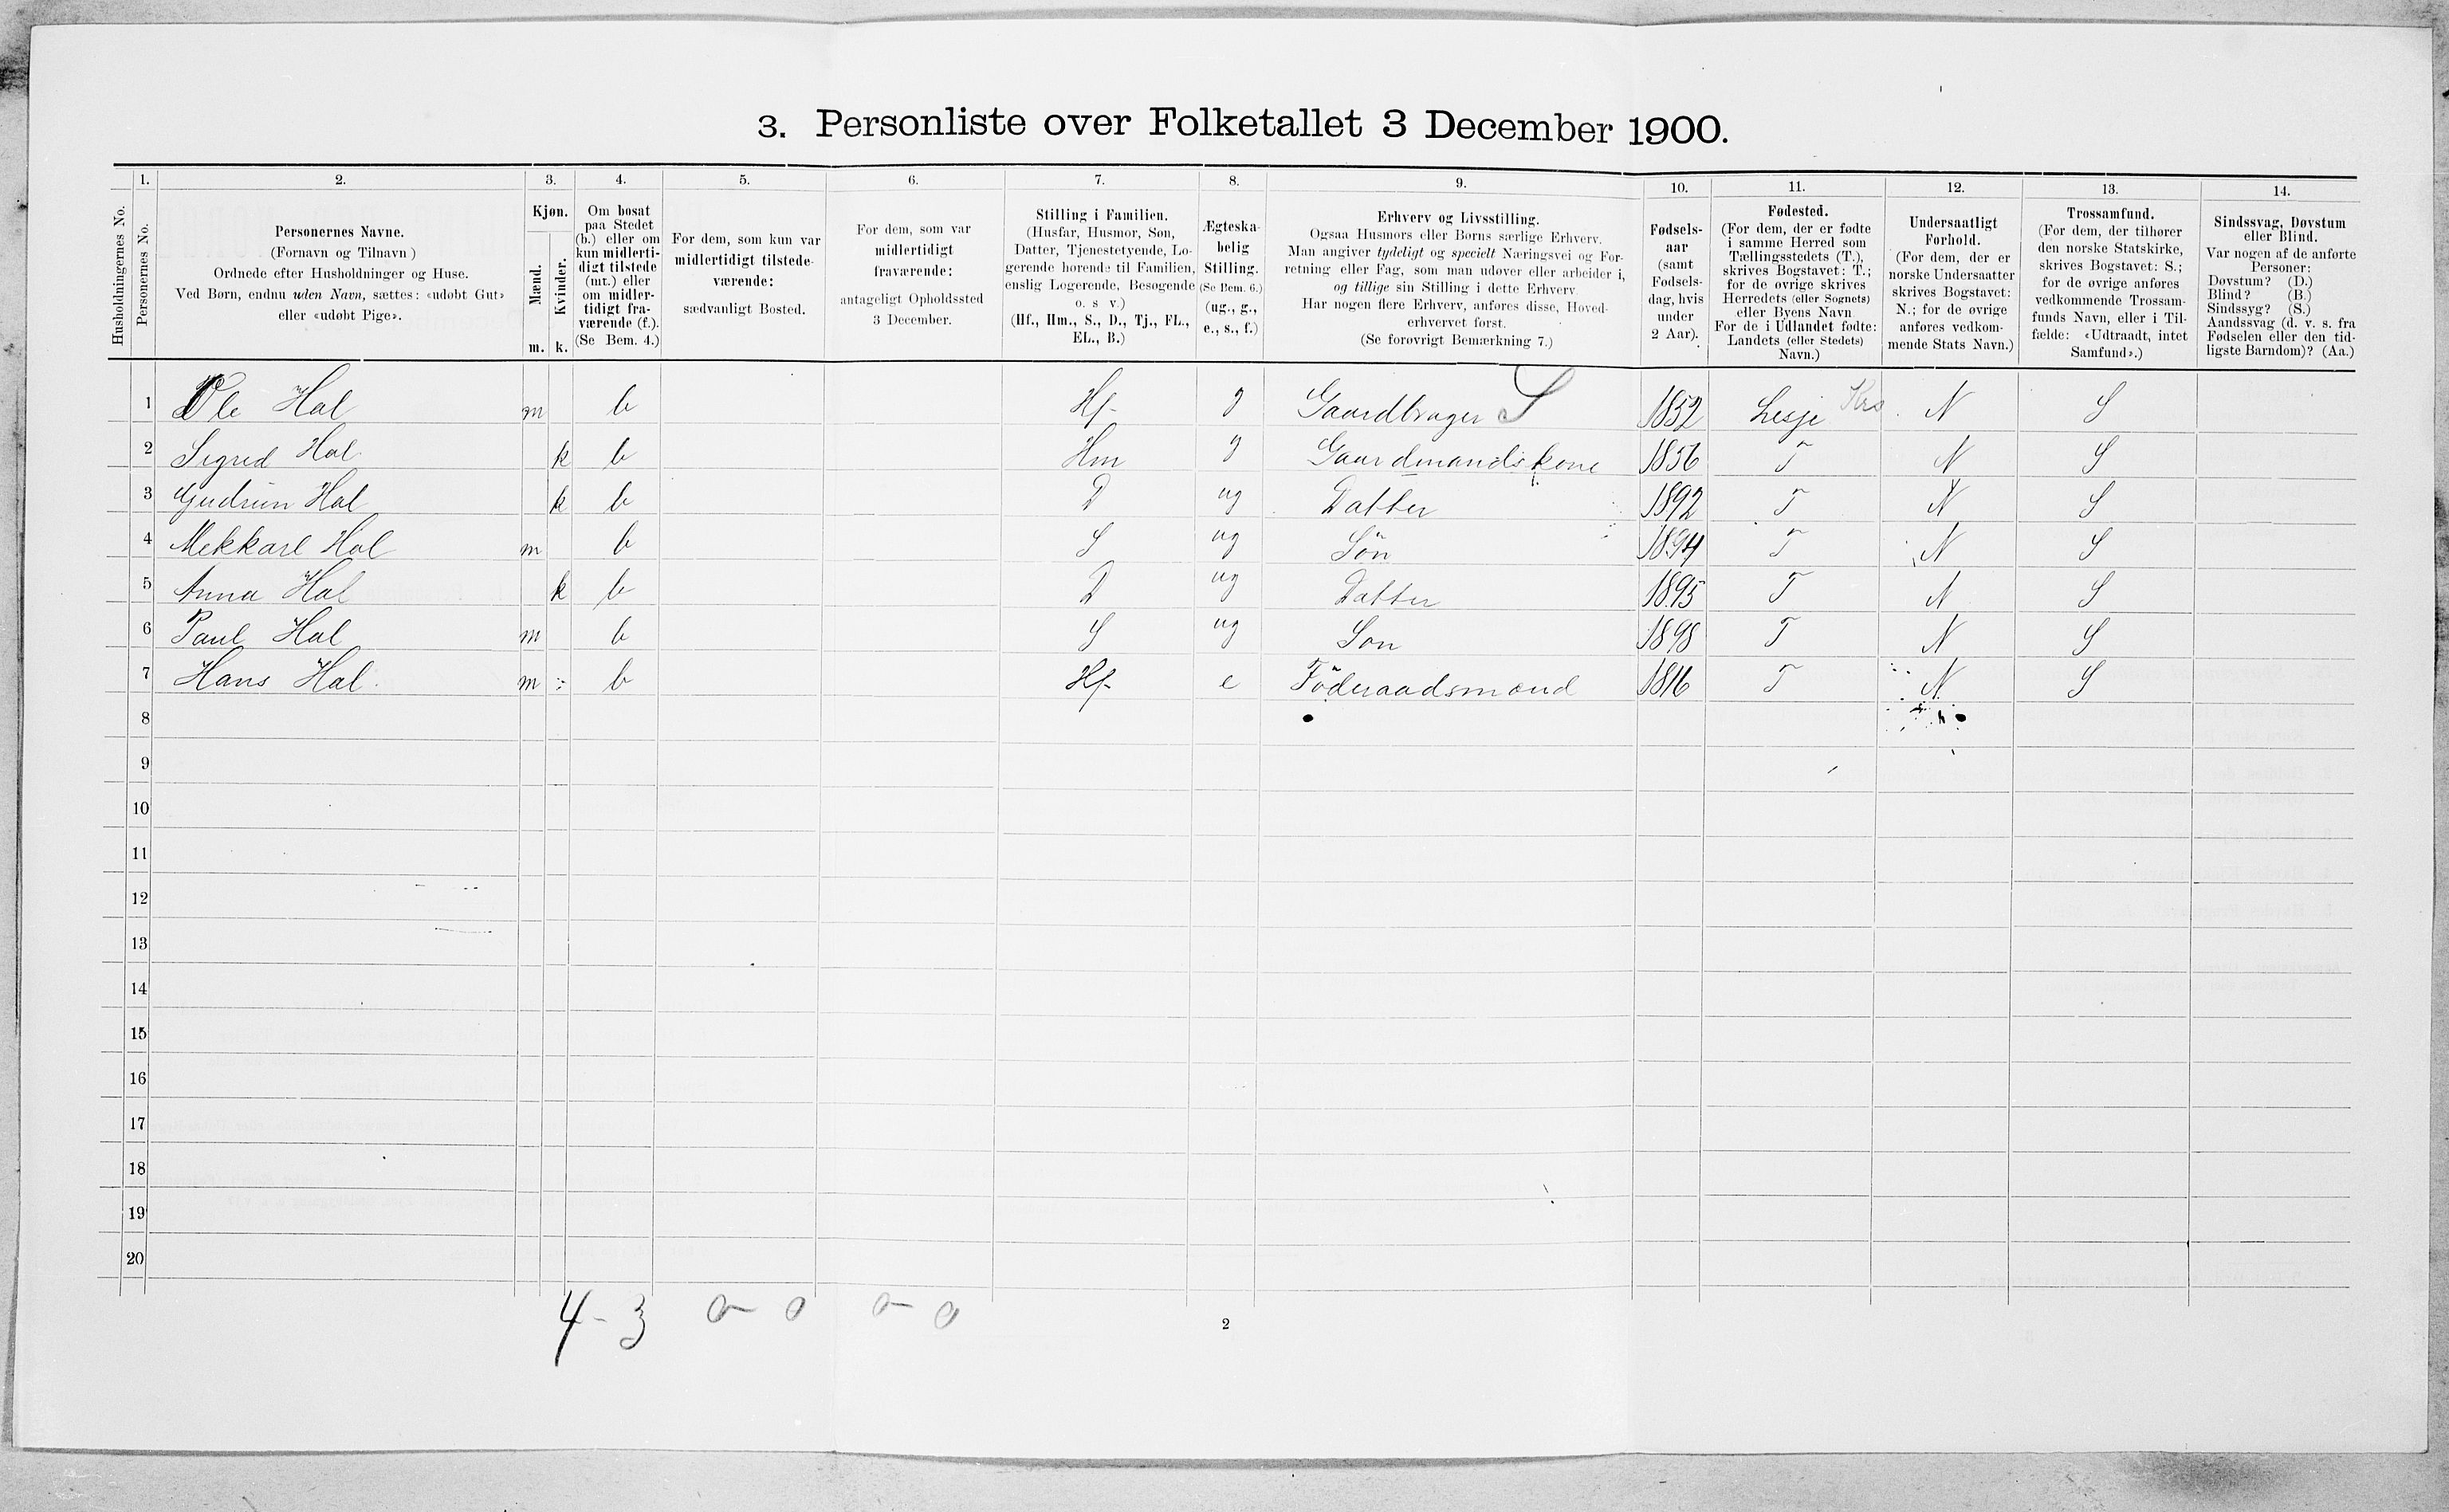 3. Personliste over Folketallet 3 December 1900.
1. 2. 3. 4. 5. 6. 7. 8. 9. 10. 11. 12. 13. 14.
Husholdningernes No.
Personernes No.
Personernes Navne.
(Fornavn og Tilnavn)
Ordnede efter Husholdninger og Huse.
Ved Børn, endnu uden Navn, sættes: «udøbt Gut»
eller «udøbt Pige».
Kjøn.
Mænd.
Kvinder.
m. k.
Om bosat
paa Stedet
(b.) eller om
kun midlerti-
digt tilstede
(mt.) eller
om midler-
tidigt fra-
værende (f.).
(Se Bem. 4.)
For dem, som kun var
midlertidigt tilstede-
værende:
sædvanligt Bosted.
For dem, som var
midlertidigt
fraværende:
antageligt Opholdssted
3 December.
Stilling i Familien.
(Husfar, Husmor, Søn,
Datter, Tjenestetyende, Lo-
gerende hørende til Familien,
enslig Logerende, Besøgende
o. s. v.)
(Hf., Hm., S., D., Tj., FL.,
EL., B.)
Ægteska-
belig
Stilling.
(Se Bem. 6.)
(ug., g.,
e., s., f.)
Erhverv og Livsstilling.
Ogsaa Husmors eller Børns særlige Erhverv.
Man angiver tydeligt og specielt Næringsvei og For-
retning eller Fag, som man udøver eller arbeider i,
og tillige sin Stilling i dette Erhverv.
Har nogen flere Erhverv, anføres disse, Hoved-
erhvervet først.
(Se forøvrigt Bemærkning 7.)
Fødsels-
aar
(samt
Fødsels-
dag, hvis
under
2 Aar).
Fødested.
(For dem, der er fødte
i samme Herred som
Tællingsstedets (T.),
skrives Bogstavet: T.;
for de øvrige skrives
Herredets (eller Sognets)
eller Byens Navn.
For de i Udlandet fødte:
Landets (eller Stedets)
Navn.)
Undersaatligt
Forhold.
(For dem, der er
norske Undersaatter
skrives Bogstavet:
N.; for de øvrige
anføres vedkom-
mende Stats Navn.)
Trossamfund.
(For dem, der tilhører
den norske Statskirke,
skrives Bogstavet: S.;
for de øvrige anføres
vedkommende Trossam-
funds Navn, eller i Til-
fælde: «Udtraadt, intet
Samfund».)
Sindssvag, Døvstum
eller Blind.
Var nogen af de anførte
Personer:
Døvstum? (D.)
Blind? (B.)
Sindssyg? (S.)
Aandssvag (d. v. s. fra
Fødselen eller den tid-
ligste Barndom)? (Aa.)
1 Ole Hol m b Hf g Gaardbruger S 1852 Lesje Krs N S
2 Sigred Hol k b Hm g Gaardmandskone 1856 T N S
3 Gudrun Hol k b D ug Datter 1892 T N S
4 Mekkael Hol m b S ug Søn 1894 T N S
5 Anna Hol k b D ug Datter 1895 T N S
6 Paul Hol m b S ug Søn 1898 T N S
7 Hans Hol m b Hf e Föderaadsmand 1816 T N S
8
9
10
11
12
13
14
15
16
17
18
19
20
4 - 3 0 - 0 0 - 0
2